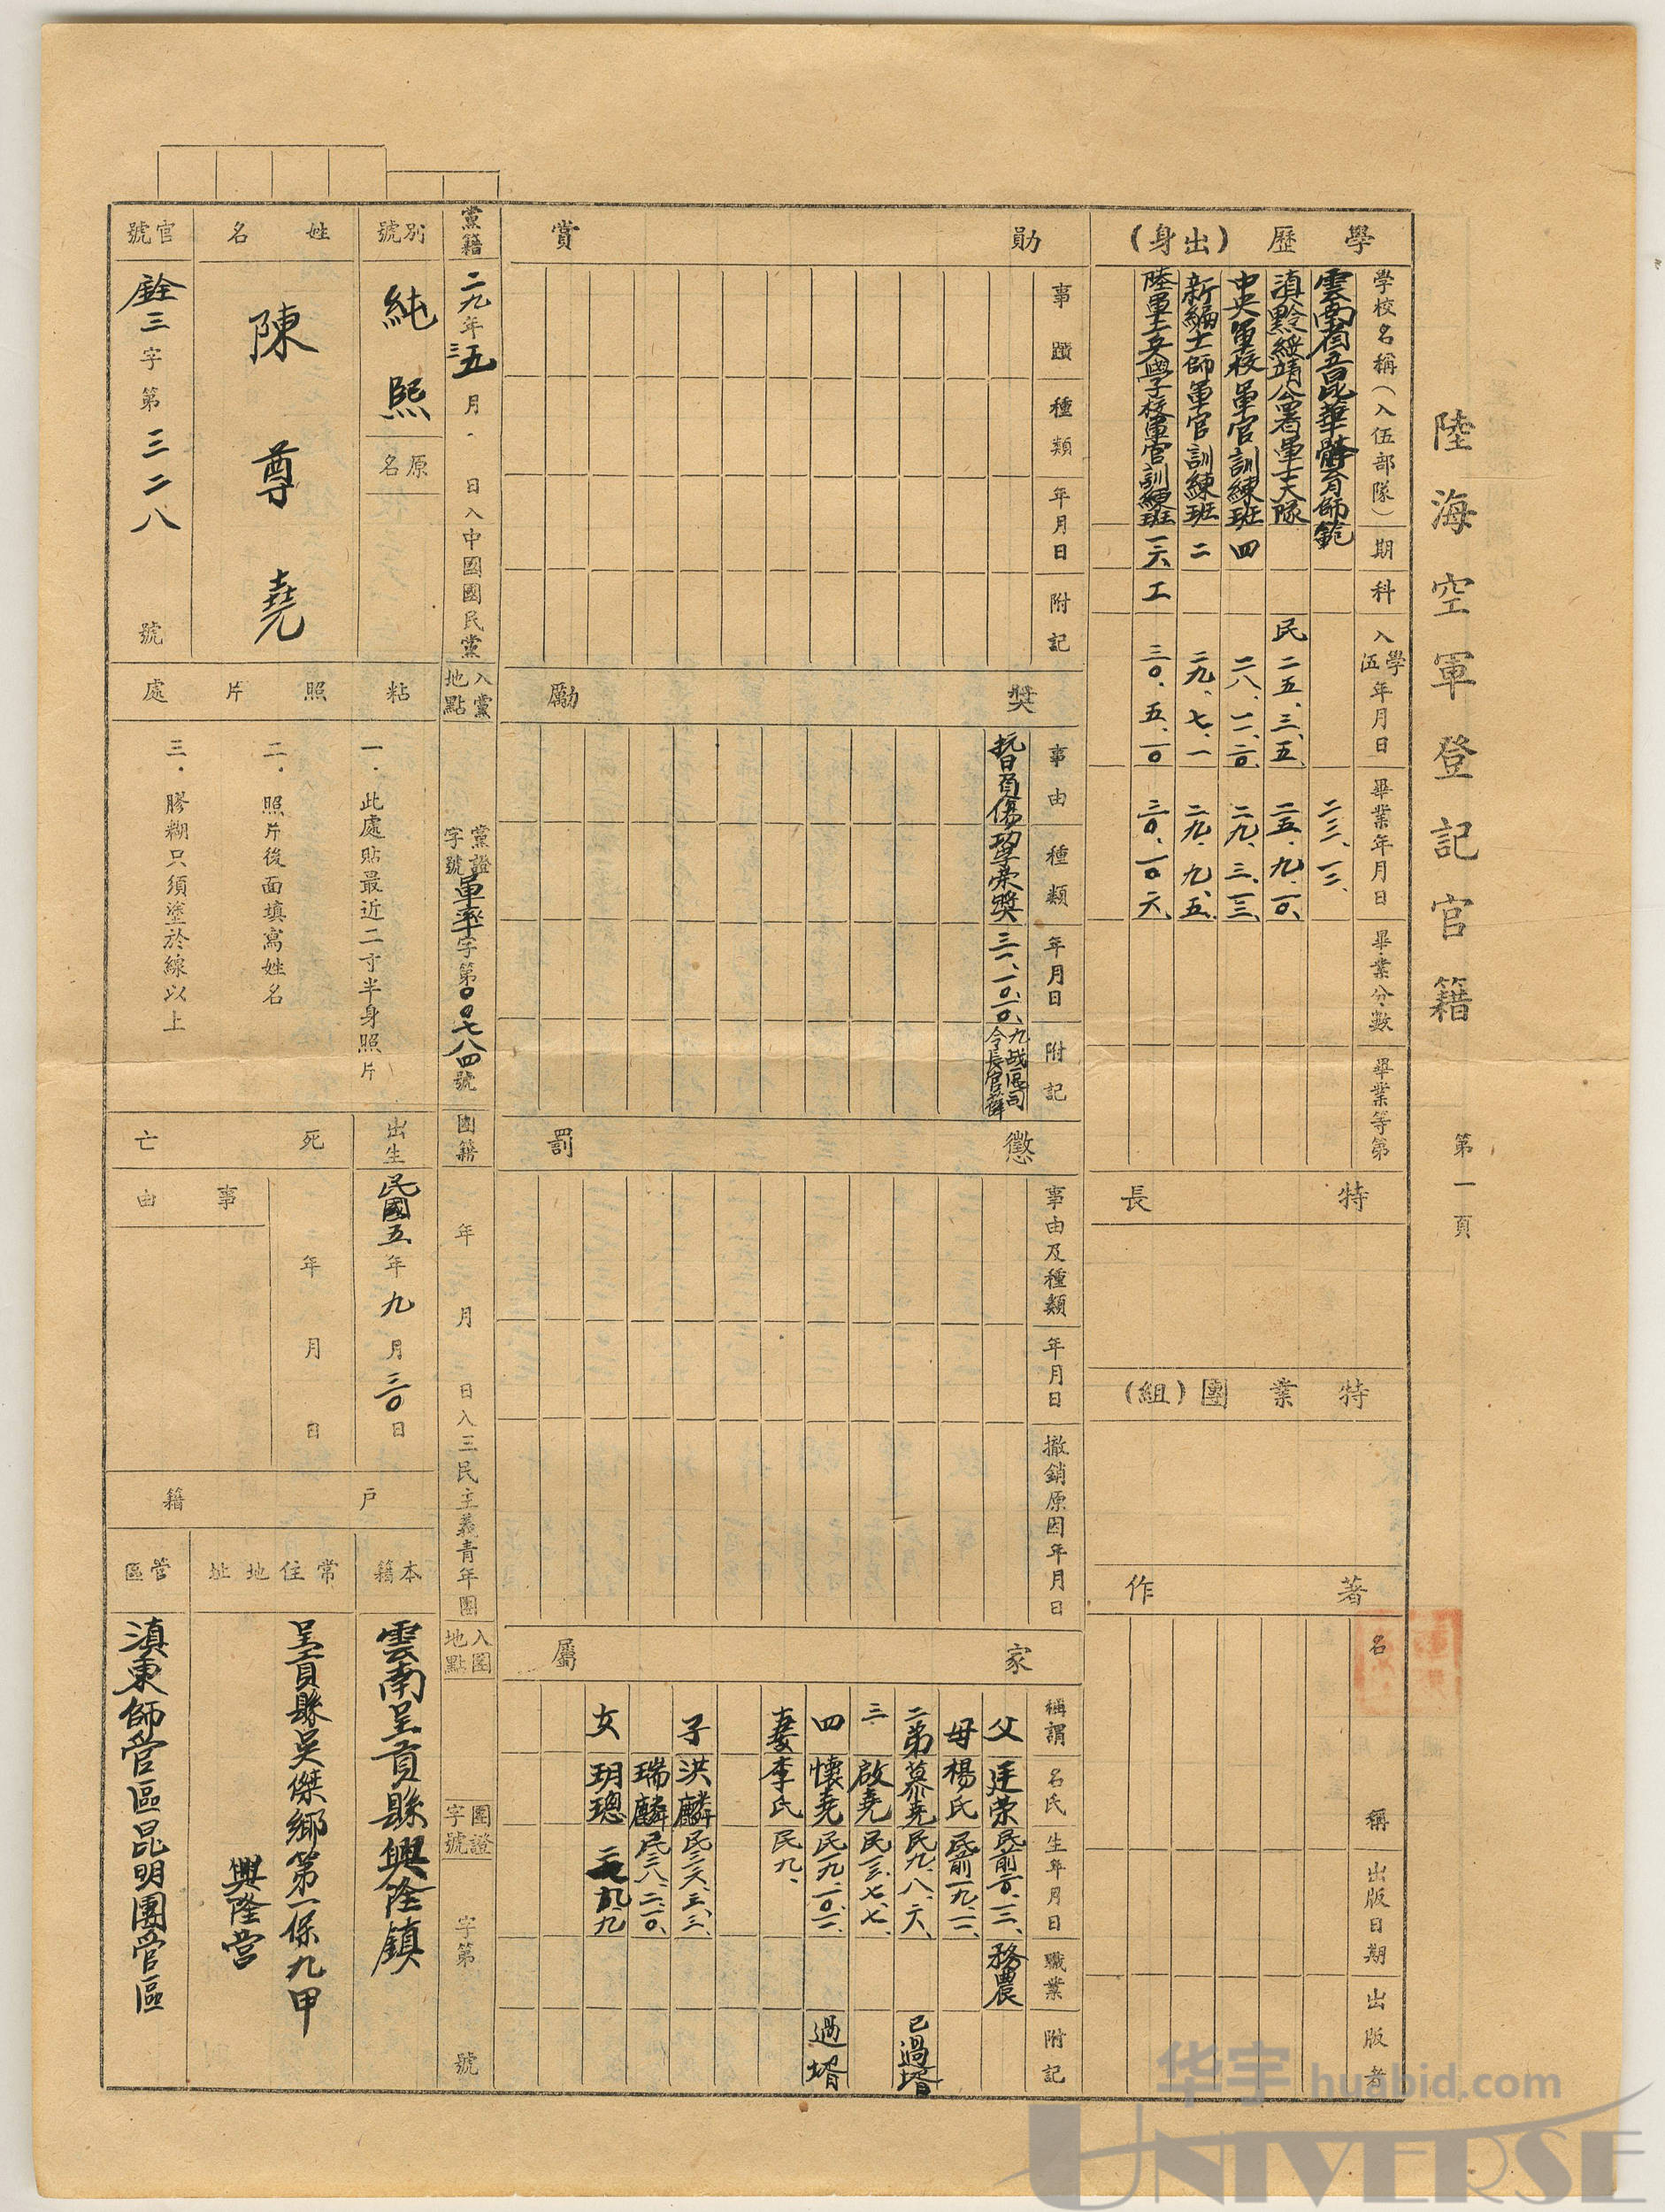 陸海空軍登記官籍
第一頁
學歷(出身)
學校名稱(入伍部隊)
期
科
入學伍年月日
畢業年月日
畢業分數
畢業等第
雲南省立昆華體育師範 二三、一二、
滇黔綏靖公署軍士大隊 民二五、三、五、 二五、九、一〇、
中央軍校軍官訓練班 四 二八、一一、二〇、 二九、三、一三、
新編十一師軍官訓練班 二 二九、七、一 二九、九、五、
陸軍工兵學校軍官訓練班 一六 工 三〇、五、一〇 三〇、一〇、六、
特長
特業團(組)
著作
名稱
出版日期
出版者
勛賞
事蹟
種類
年月日
附記
獎勵
事由
種類
年月日
附記
抗日負傷 榮獎 三一、一〇、一〇、 九战區司令長官薛
懲罰
事由及種類
年月日
撤銷原因年月日
家屬
稱謂
名氏
生年月日
職業
附記
父 廷荣 務農
母 楊氏 民前一九、二、二
二弟 慕堯 民九、八、六、 已過壻
三 啟堯 民一三、七、七、
四 懷堯 民一九、一〇、二、 過壻
妻 李氏 民九、
子 洪麟 民二六、三、三、
瑞麟 民二八、二、一〇、
女 玥璁
黨籍
二九年五月 日入中國國民黨
入黨地點
黨證字號
軍率字第00七八四號
團籍
年 月 日入三民主義青年團
入團地點
團證字號
字第 號
別號
純熙
原名
姓名
陳尊堯
官號
銓三字第三二八號
粘照片處
一.此處貼最近二寸半身照片
二.照片後面填寫姓名
三.膠糊只須塗於線以上
出生
民國五年九月三〇日
死亡
年 月 日
事由
戶籍
本籍
雲南呈貢縣興隆鎮
常住地址
呈貢縣吳傑鄉第一保九甲
興隆营
管區
滇東師管區昆明團管區
华宇 huabid.com
UNIVERSE